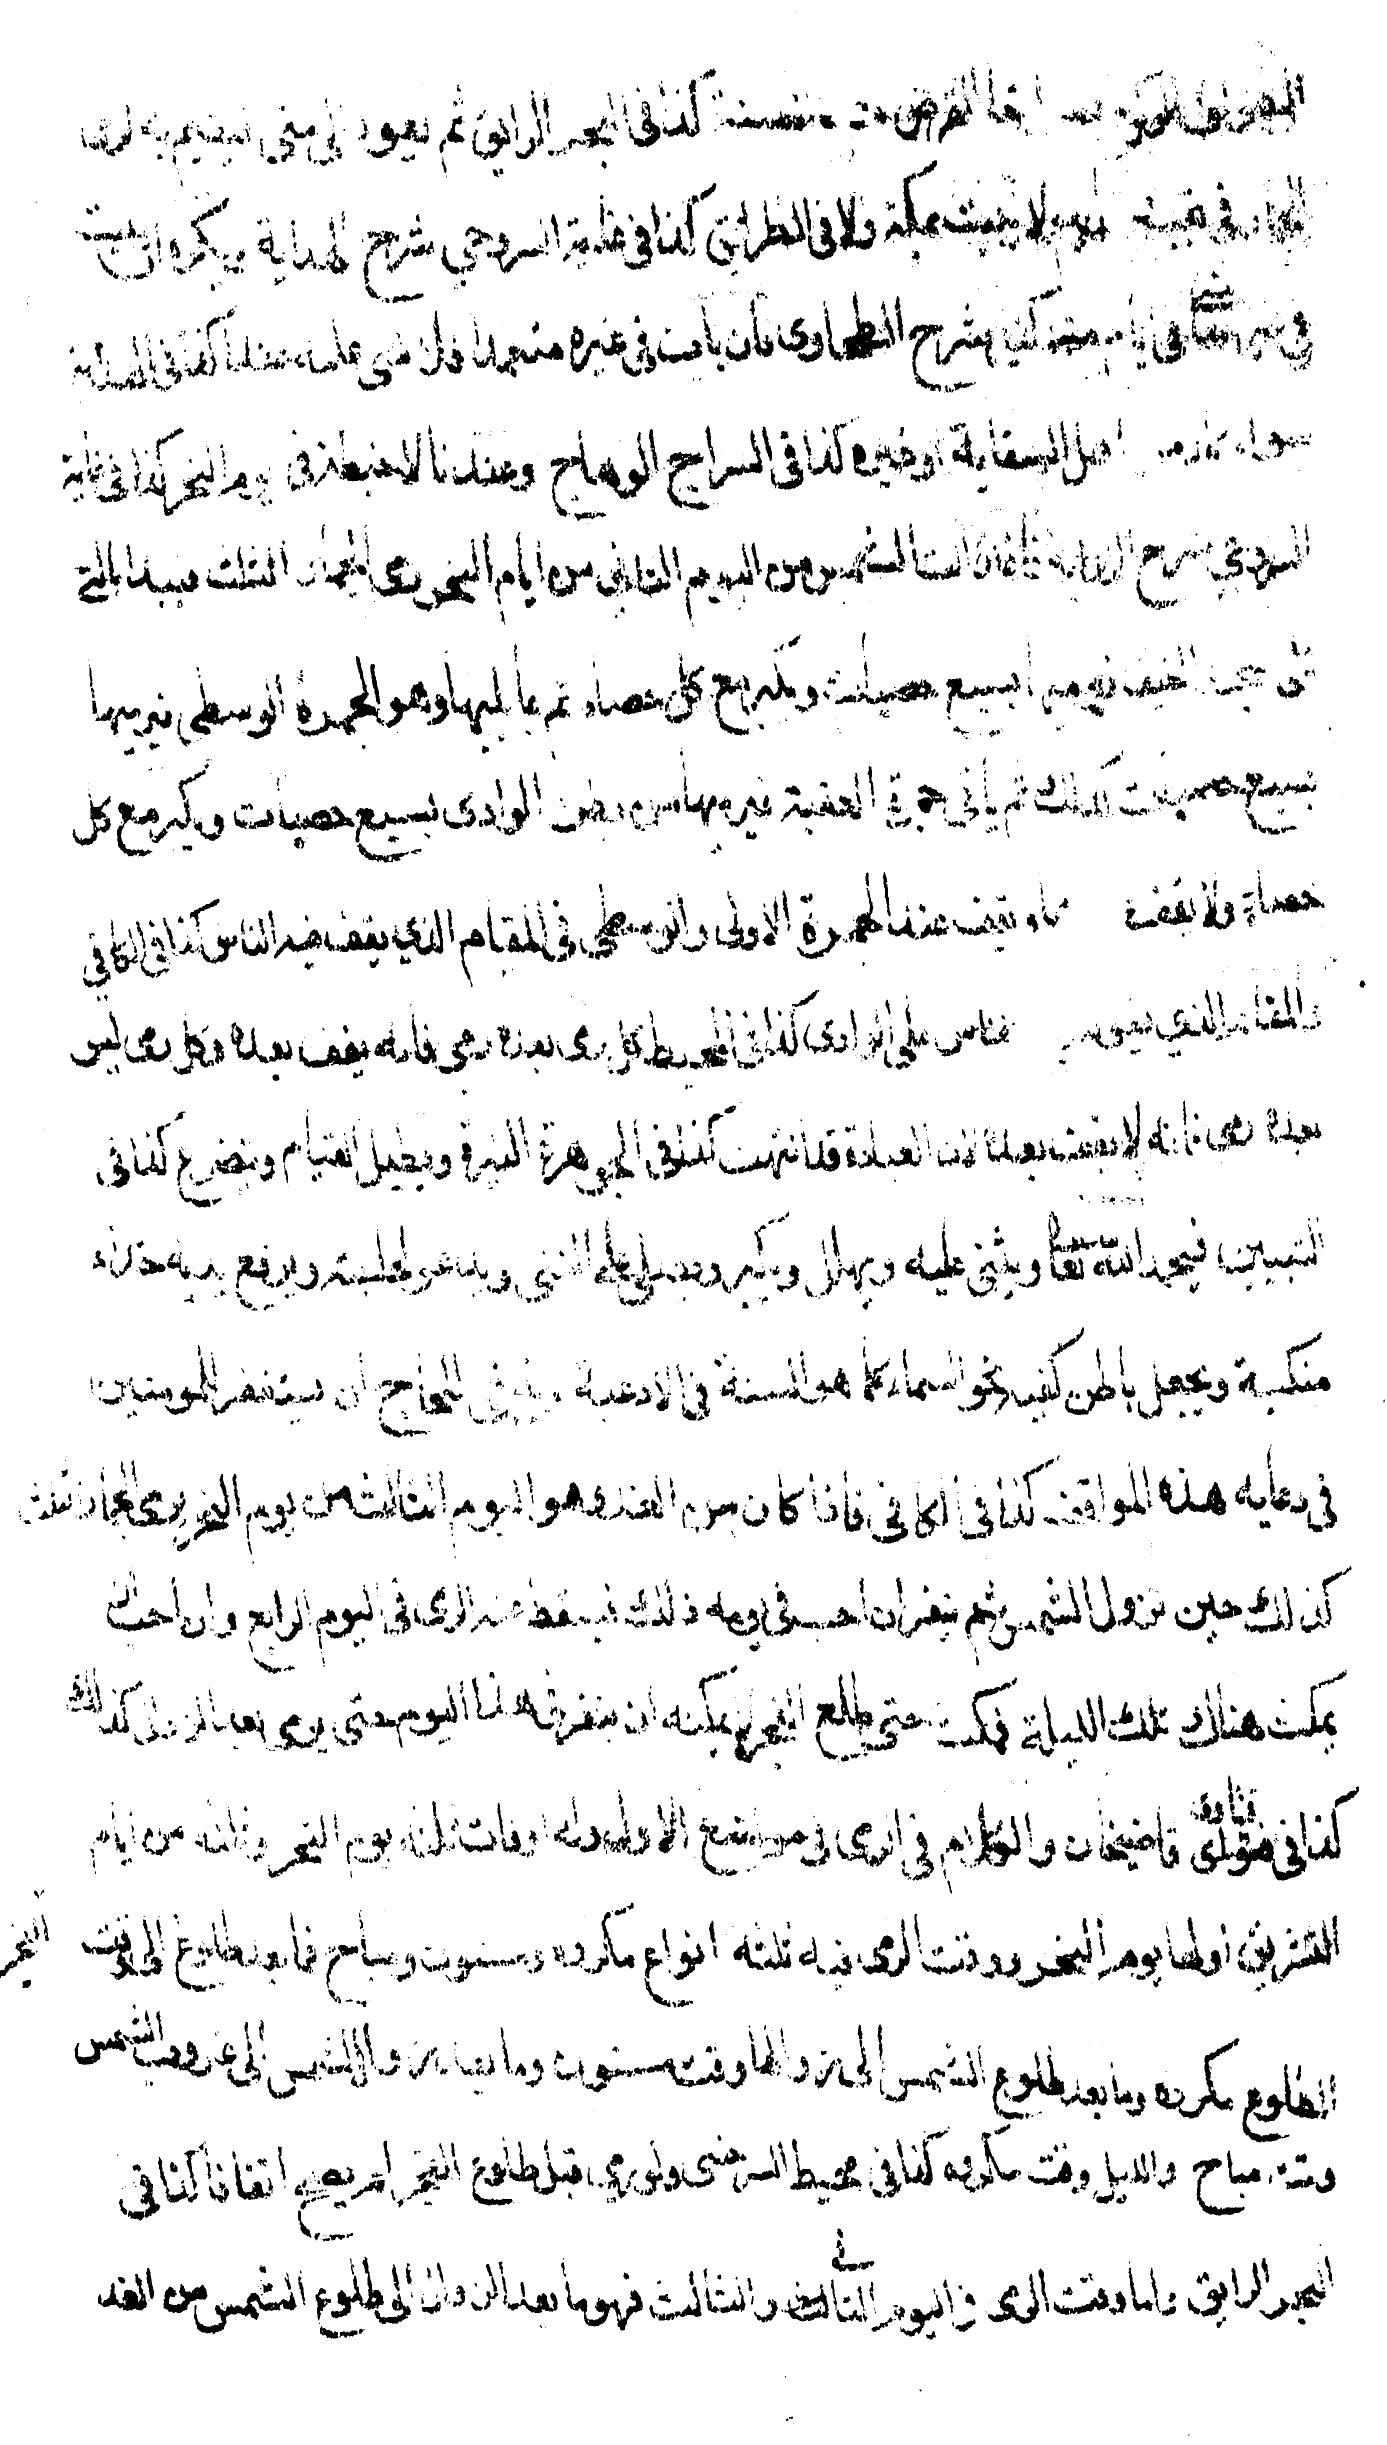 كذا في البحر الرايق ثم يعود الى منى فيقيم به لرمي
الجمار في بقية ولا يبيت بمكة ولا في الطريق كذا في غاية السروجي شرح الهداية ويكره ان يبيت
في غير منى في ايام منى كذا في شرح الطحاوي فان بات في غيره متعمدا فلا شي عليه عندنا كذا في الهداية
سواء كان من اهل السقاية او غيره كذا في السراج الوهاج وعندنا لا خطبة في يوم النحر كذا في غاية
السروجي شرح الهداية فاذا زالت الشمس من اليوم الثاني من ايام النحر رمى الجمار الثلث فيبدا بالتي
تلي مسجد الخيف فيرميها بسبع حصيات ويكبر مع كل حصاة ثم ما يليها وهو الجمرة الوسطى فيرميها
بسبع حصيات كذلك ثم ياتي جمرة العقبة فيرميها من بطن الوادي بسبع حصيات ويكبر مع كل
حصاة ولا يقف عندها ويقف عند الجمرة الاولى والوسطى في المقام الذي يقف فيه الناس كذا في الكافي
والمقام الذي يقوم فيه الناس على الوادي كذا في المحيط كل رمي بعده رمي فانه يقف بعده وكل رمي ليس
بعده رمي فانه لا يقف بعده لان العبادة قد انتهت كذا في الجوهرة النيرة ويطيل القيام ويتضرع كذا في
التبيين فيحمد الله تعا ويثني عليه ويهلل ويكبر ويصلي على النبي ويدعو لحاجته ويرفع يديه حذاء
منكبية ويجعل باطن كفيه نحو السماء كما هو السنة في الادعية وينبغي للحاج ان يستغفر للمومنين
في دعايه هذه المواقف كذا في الكافي فاذا كان من الغد وهو اليوم الثالث من يوم النحر يرمي الجمار الثلث
كذلك حين تزول الشمس ثم ينفران احب في يومه ذلك فيسقط عنه الرمي في اليوم الرابع وان احب ان
يمكث هناك تلك الليلة فمكث حتى طلع الفجر لا يمكنه ان ينفر في هذا اليوم حتى يرمي بعد الزوال كذلك
كذا في فتاوى قاضيخان والكلام في الرمي في مواضع الاول وله اوقات ثلثه يوم النحر وثلثه من ايام
التشريق اولها يوم النحر ووقت الرمي فيه ثلثه انواع مكروه ومسنون ومباح فما بعد طلوع الفجر الى وقت
الطلوع مكروه وما بعد طلوع الشمس الى زوالها وقت مسنون وما بعد زوال الشمس الى غروب الشمس
وقت مباح والليل وقت مكروه كذا في محيط السرخسى ولو رمي قبل طلوع الفجر لم يصح اتفاقا كذا في
البحر الرايق واما وقت الرمي في اليوم الثاني والثالث فهو ما بعد الزوال الى طلوع الشمس من الغد